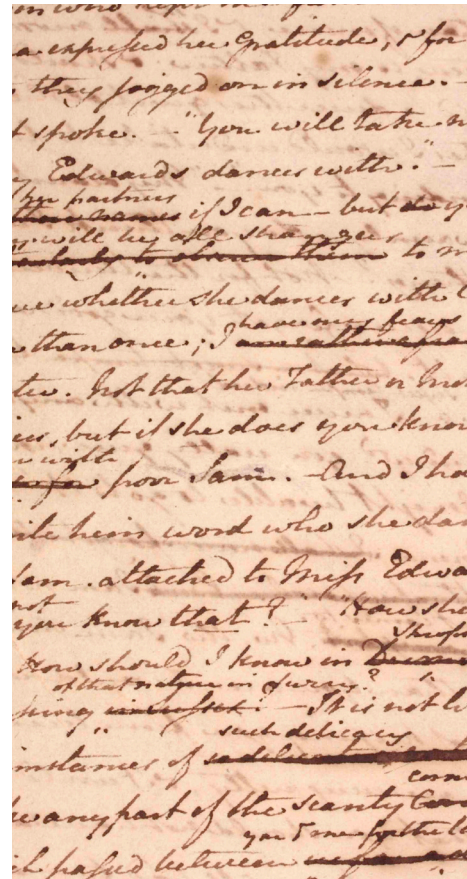 a expressed her Gratitude, & for
they jogged on in silence. —
t spoke. — "You will take n
Edwards dances with." —
their partners
their names if I can — but
will be all strangers
to observe them to m
ve whether she dances with C
have my fears
than once; I
te. Not that her Father or Mo
ies, but if she does you know
with
poor Sam. — And I ha
ite him word who she dan
Sam attached to Miss Edwa
not
you know that? — "How sho
Shrops
How should I know in
of that nature in Surry?
sing — It is not l
such delicacy
instances of
com
be any part of the scanty Com
you & me for the l
ch passed between